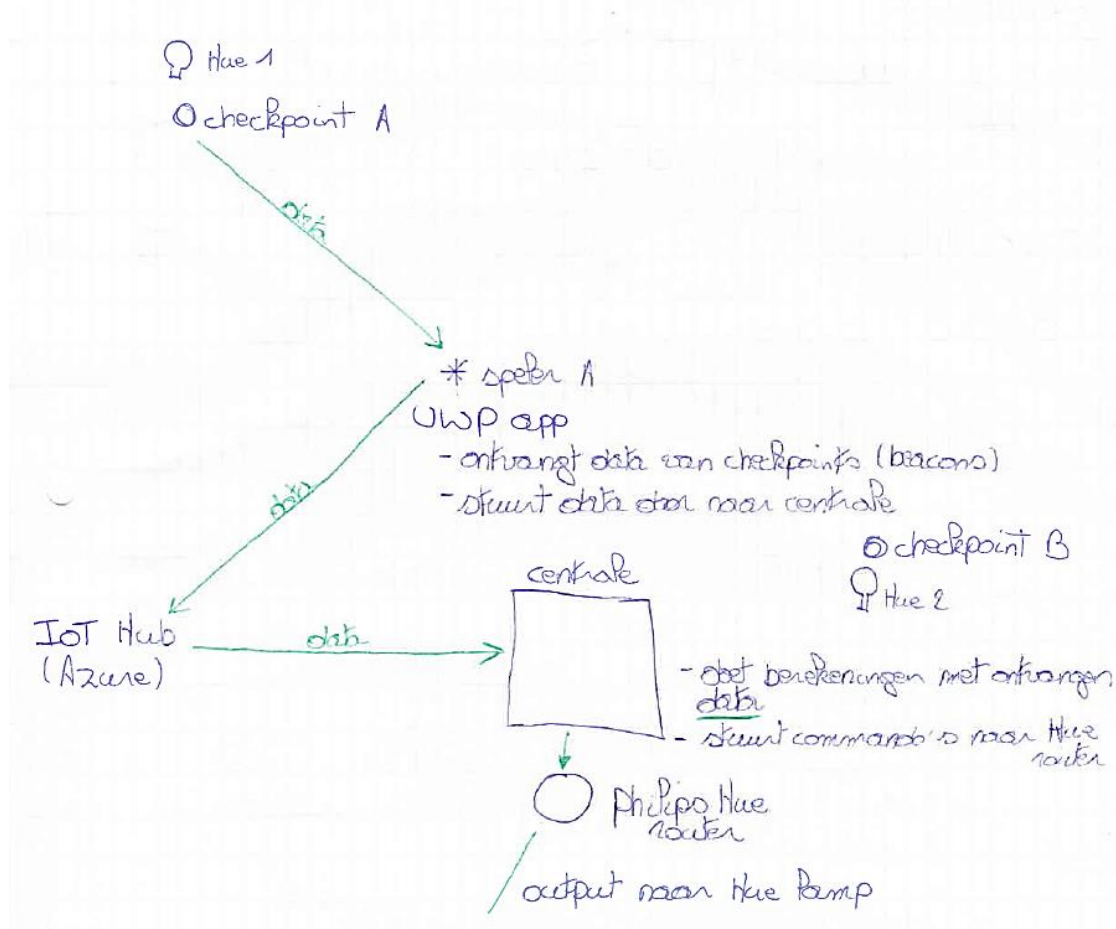 Hue 1
checkpoint A
data
* speler A
UWP app
- ontvangt data van checkpoints (beacons)
- stuurt data door naar centrale
data
checkpoint B
Hue 2
centrale
IoT Hub
(Azure)
data
- doet berekeningen met ontvangen
data
- stuurt commando's naar Hue
router
Philips Hue
router
output naar Hue lamp